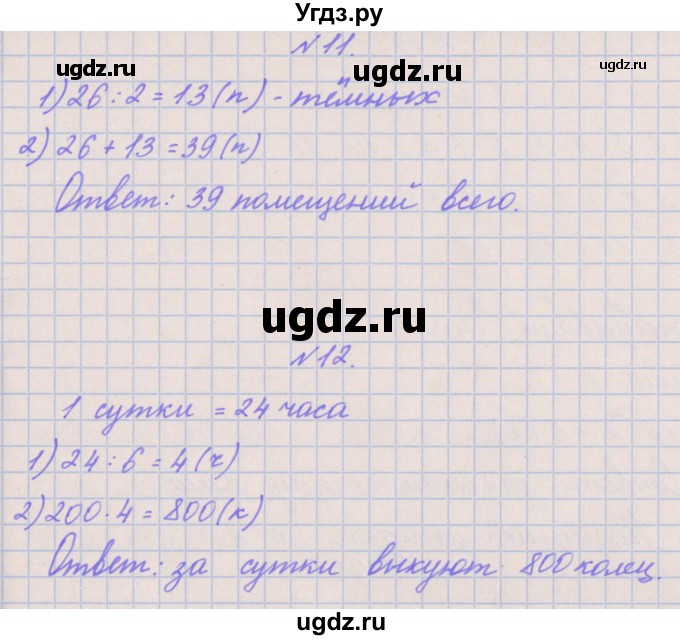 Угдз.ру
N 11.
ugdz.ru ugdz.ru ugdz.ru
1) 26 : 2 = 13 (п) - тёмных
2) 26 + 13 = 39 (п)
Ответ: 39 помещений всего.
ugdz.ru
N 12.
1 сутки = 24 часа
1) 24 : 6 = 4 (ч)
2) 200 · 4 = 800 (к)
Ответ: за сутки выкуют 800 колец.
ugdz.ru